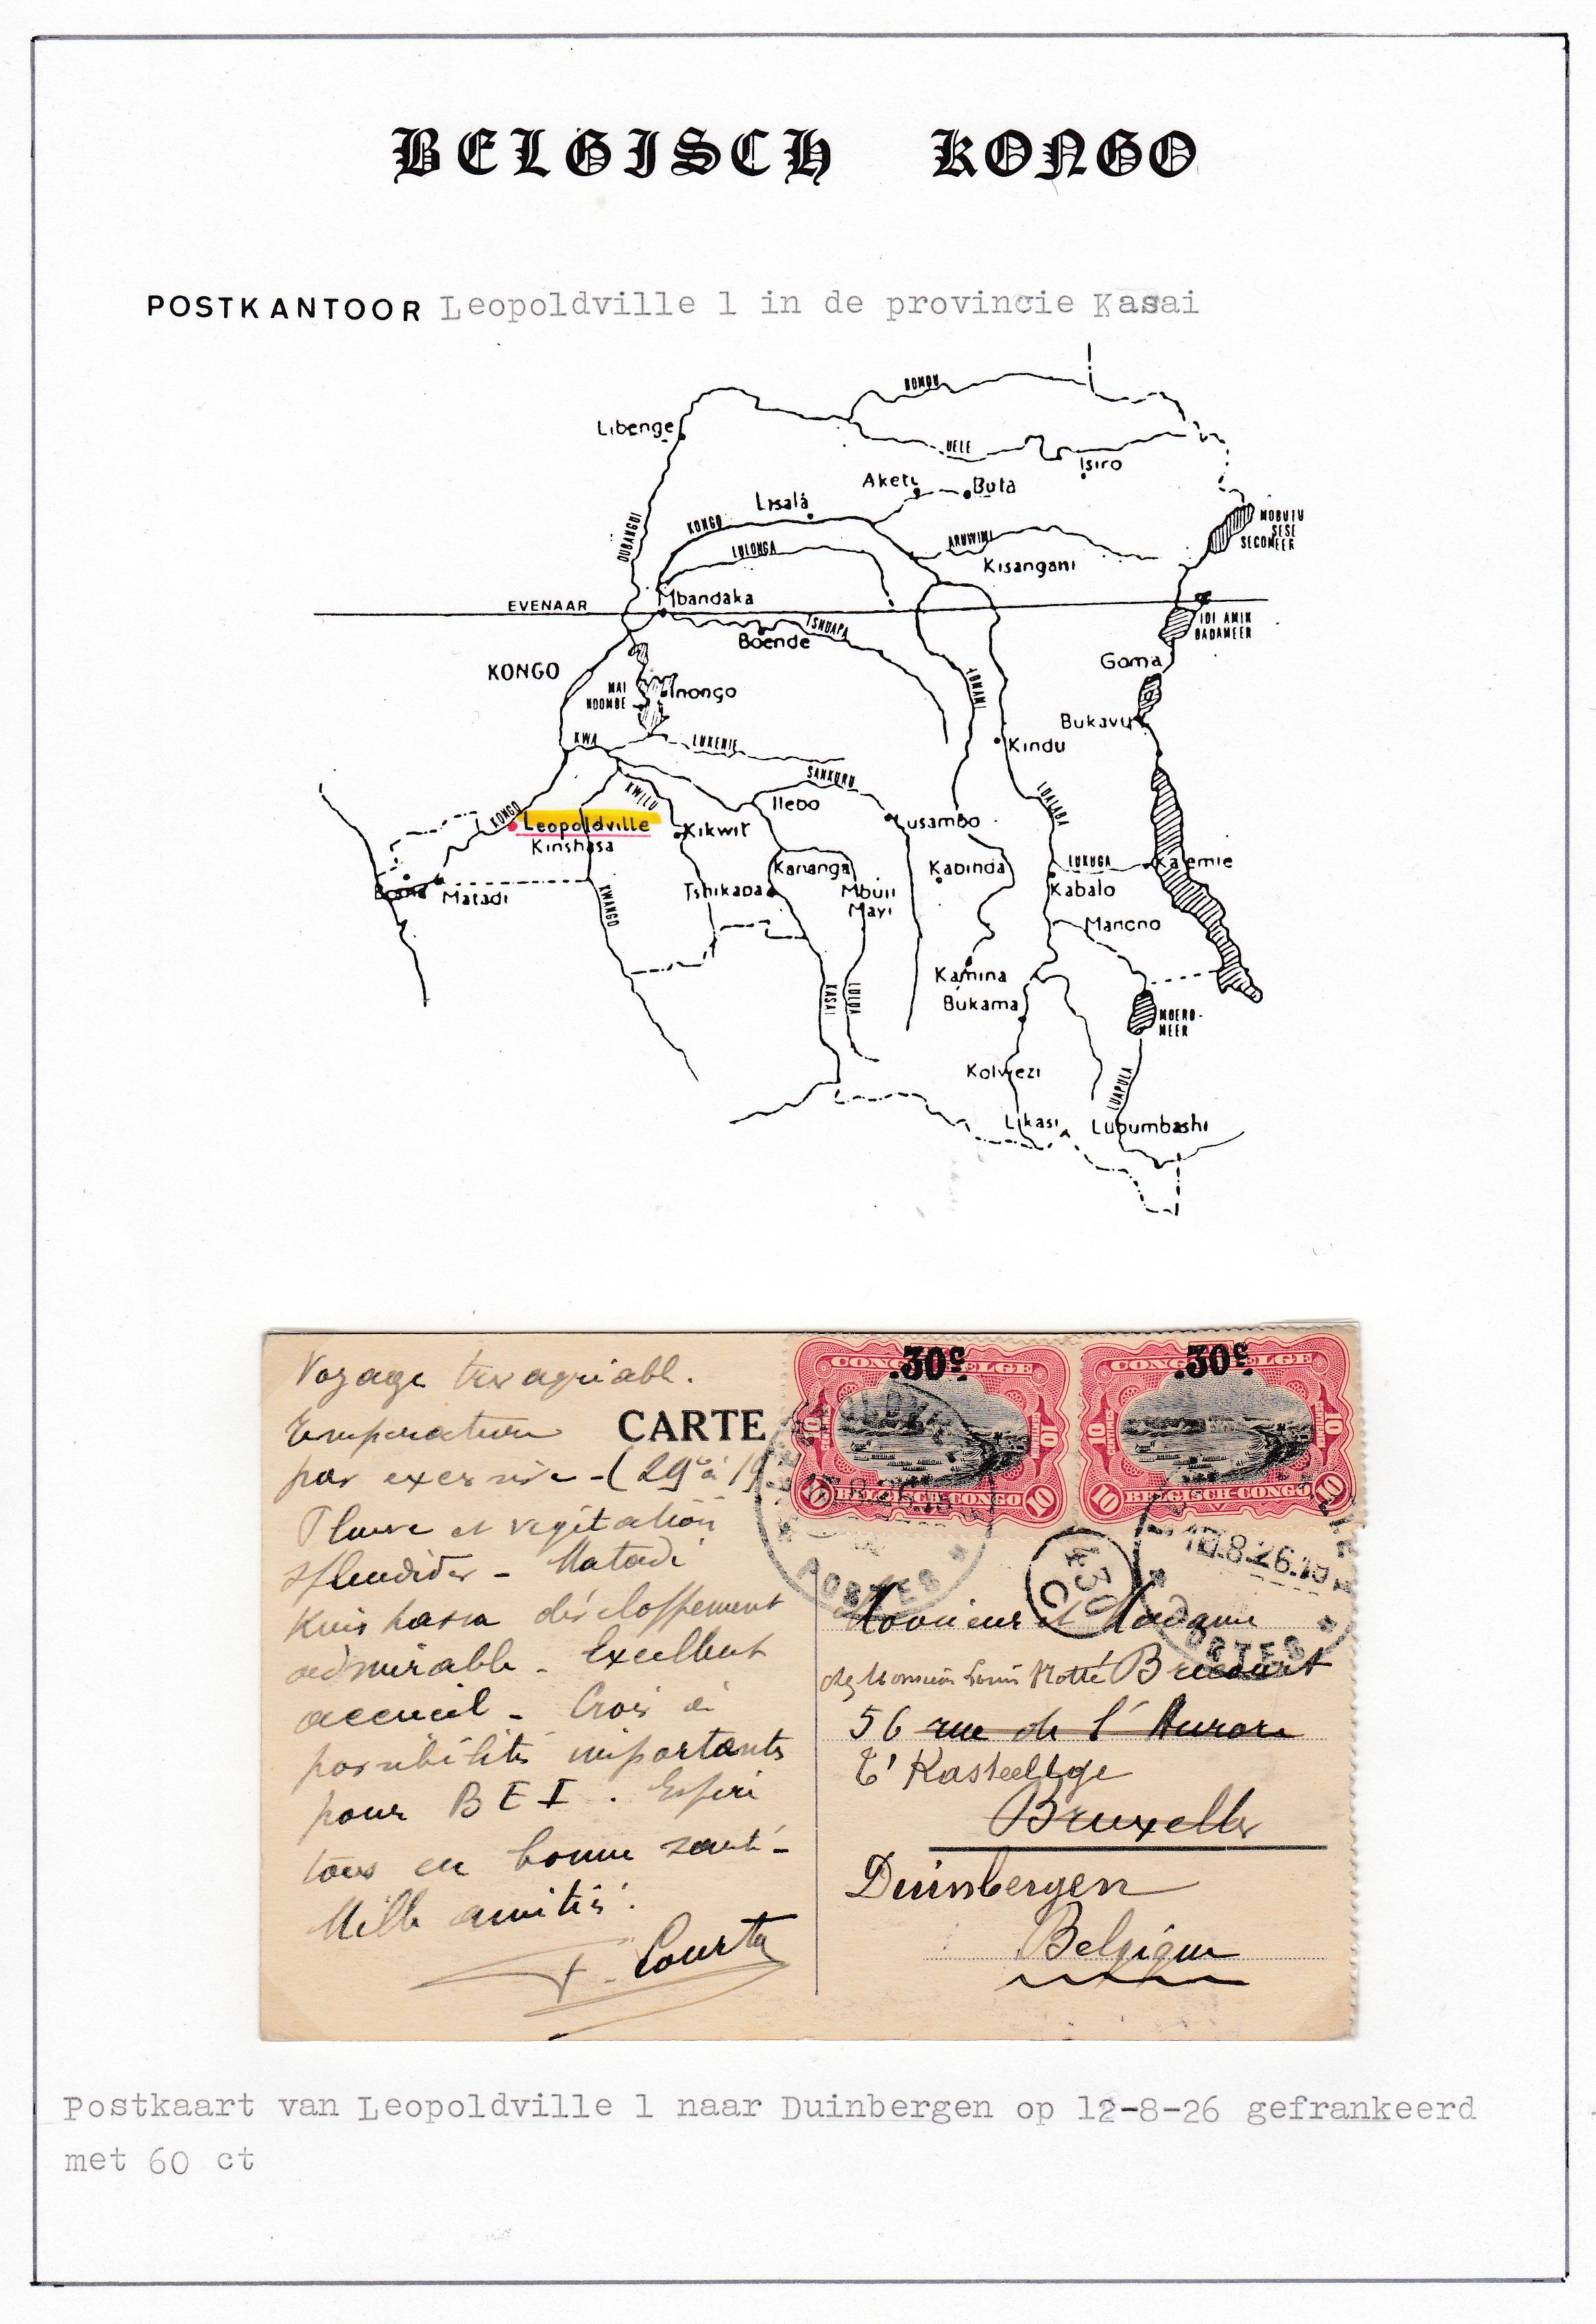 BELGISCH KONGO
POSTKANTOOR Leopoldville 1 in de provincie Kasai
BOMU
Libenge
UELE
Isiro
Aketi
Buta
Lisala
KONGO
OUBANGUI
MOBUTU
SESE
SECOMEER
LULONGA
ARUWIMI
Kisangani
EVENAAR
Mbandaka
TSHUAPA
IDI AMIN
DADAMEER
Boende
KONGO
Goma
MAI
NDOMBE
Inongo
LOMAMI
Bukavu
KWA
LUKENIE
Kindu
SANKURU
KWILU
Ilebo
LUALABA
KONGO
Leopoldville
Kikwit
Lusambo
Kinshasa
Kananga
Kabinda
LUKUGA
Kalemie
Boma
Matadi
KWANGO
Tshikapa
Mbuji
Mayi
Kabalo
Manono
Kamina
KASAI
LULUA
Bukama
MOERO-
MEER
Kolwezi
LUAPULA
Likasi
Lubumbashi
CONGO BELGE
30c
10
BELGISCH-CONGO
CONGO BELGE
30c
10
BELGISCH-CONGO
POSTES
18.8.26.19
POSTES
430
C
CARTE
Voyage tres agréable.
Temperature
pas excessive - (29° à 19
Fleuve et végétation
splendides - Matadi
Kinshasa développement
admirable - Excellent
accueil - Crois à
possibilités importants
pour B E I . Espère
tous en bonne santé -
Mille amitiés.
F. Courty
Monsieur et Madame
chez Monsieur Louis Motté Brecourt
56 rue de l'Aurore
T' Kasteeltge
Bruxelles
Duinbergen
Belgique
Postkaart van Leopoldville 1 naar Duinbergen op 12-8-26 gefrankeerd
met 60 ct